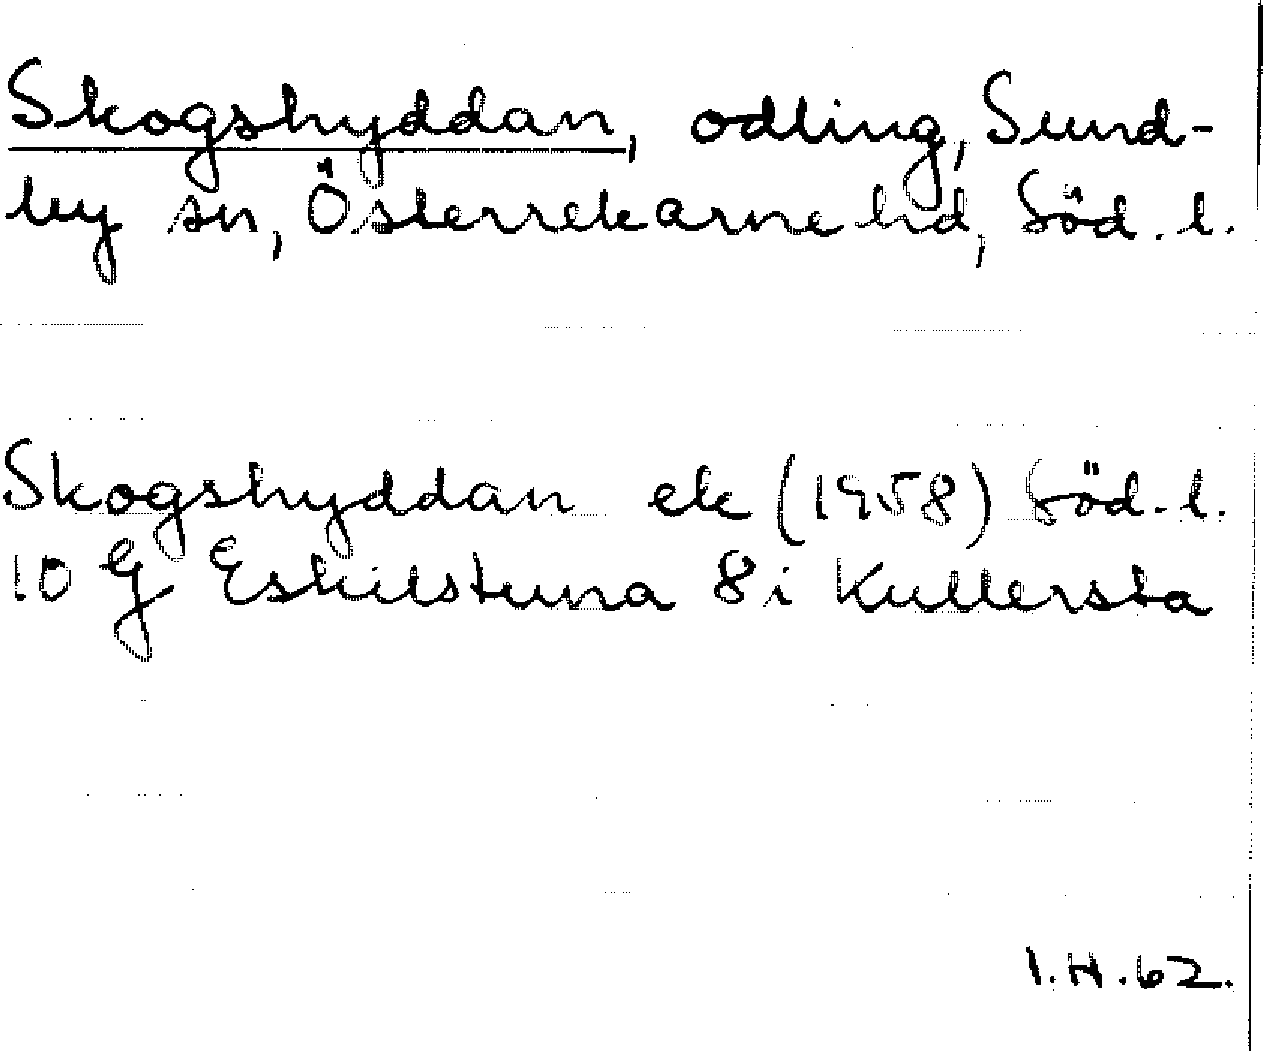 Skogshyddan, odling, Sund-
by sn, Österrekarne hd, Söd. l.
Skogshyddan ek (1958) Söd. l.
10 G Eskilstuna 8 i Kullersta
I.H.62.